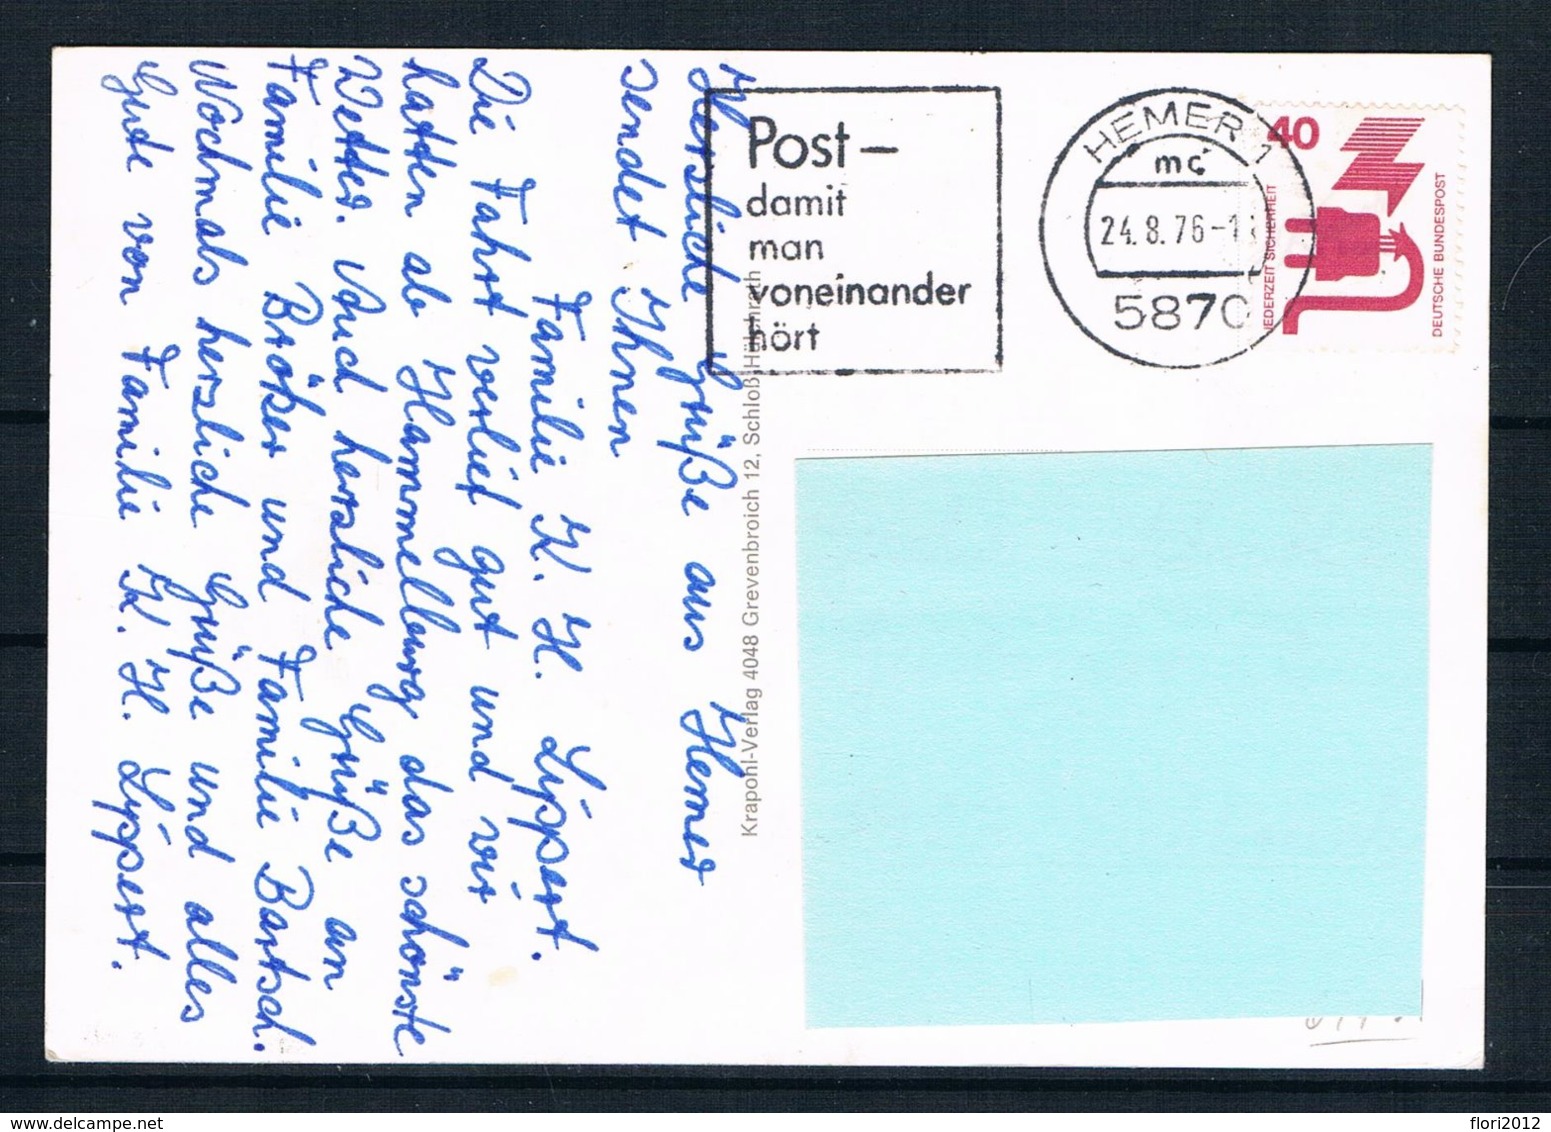 Herzliche Grüße aus Hemer
sendet Ihnen
Familie K. H. Lippert.
Die Fahrt verlief gut und wir
hatten ab Hammelburg das schönste
Wetter. Auch herzliche Grüße an
Familie Bröker und Familie Bartsch.
Nochmals herzliche Grüße und alles
Gute von Familie K. H. Lippert.
Post –
damit
man
voneinander
hört
HEMER 1
mc
24.8.76-1
5870
40
JEDERZEIT SICHERHEIT
DEUTSCHE BUNDESPOST
Krapohl-Verlag 4048 Grevenbroich 12, Schloß Hülchrath
delcampe.net
flori2012